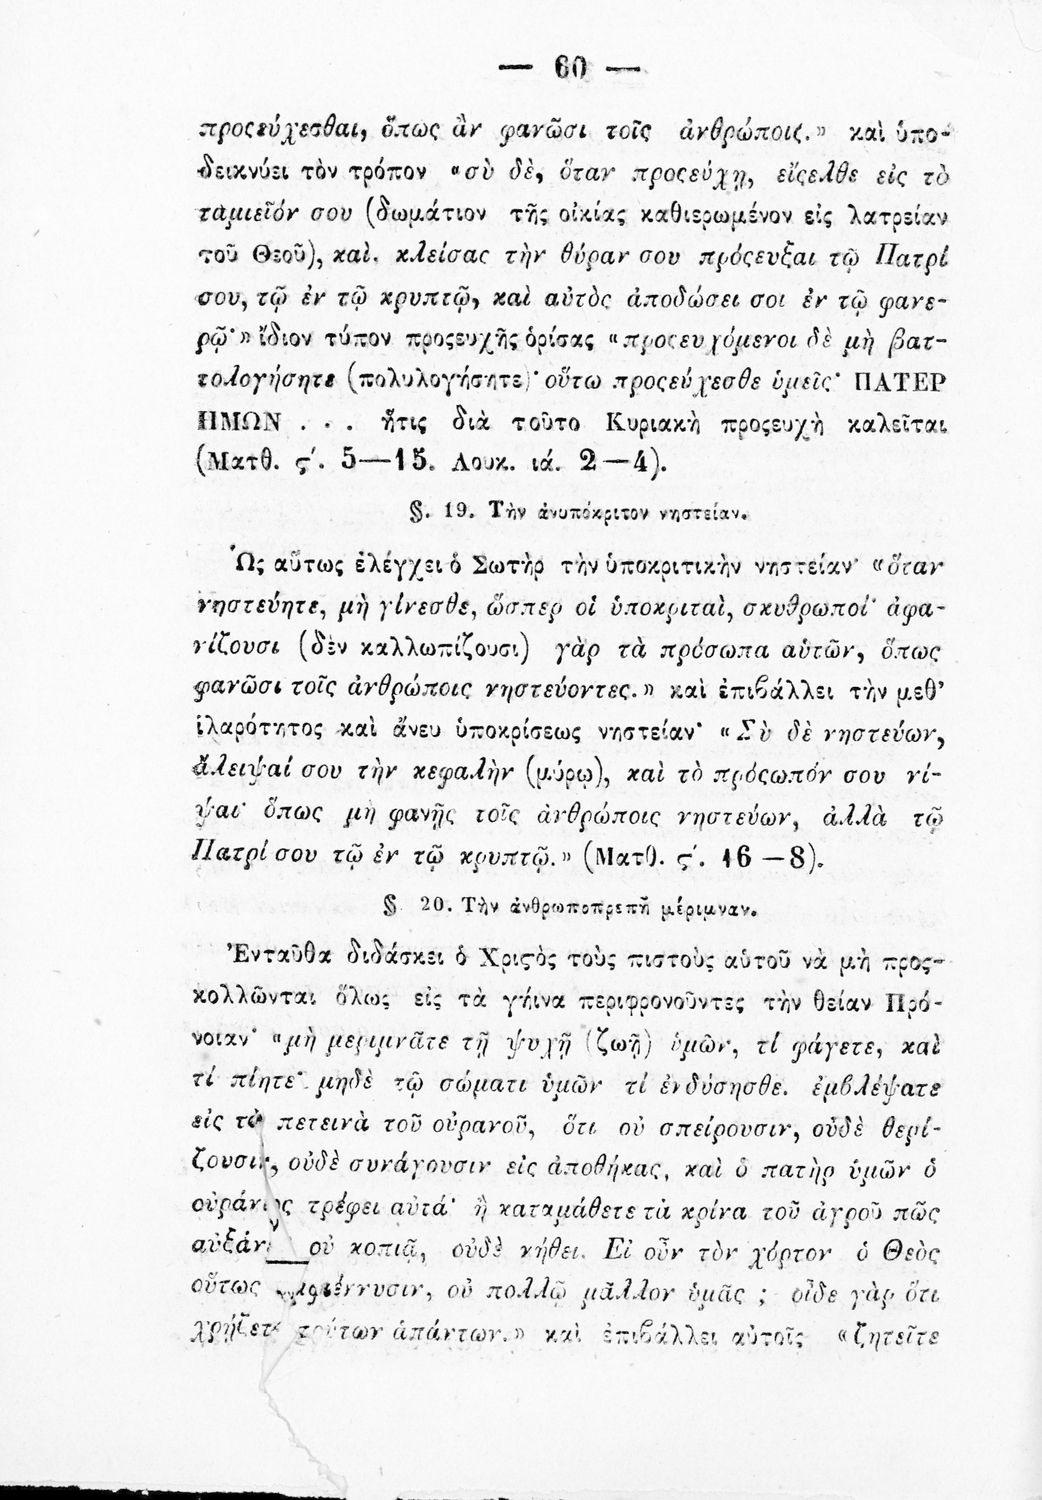 — 60 —
προςεύχεσθαι, ὅπως ἂν φανῶσι τοῖς ἀνθρώποις.» καὶ ὑπο-
δεικνύει τὸν τρόπον «σὺ δὲ, ὅταν προςεύχῃ, εἴςελθε εἰς τὸ
ταμιεῖόν σου (δωμάτιον τῆς οἰκίας καθιερωμένον εἰς λατρείαν
τοῦ Θεοῦ), καὶ. κλείσας τὴν θύραν σου πρόςευξαι τῷ Πατρί
σου, τῷ ἐν τῷ κρυπτῷ, καὶ αὐτὸς ἀποδώσει σοι ἐν τῷ φανε-
ρῷ·» ἴδιον τύπον προςευχῆς ὁρίσας «προςευχόμενοι δὲ μὴ βατ-
τολογήσητε (πολυλογήσητε)· οὕτω προςεύχεσθε ὑμεῖς· ΠΑΤΕΡ
ΗΜΩΝ . . . ἥτις διὰ τοῦτο Κυριακὴ προςευχὴ καλεῖται
(Ματθ. ϛ΄. 5—15. Λουκ. ιά. 2—4).
§. 19. Τὴν ἀνυπόκριτον νηστείαν.
Ὡς αὕτως ἐλέγχει ὁ Σωτὴρ τὴν ὑποκριτικὴν νηστείαν· «ὅταν
νηστεύητε, μὴ γίνεσθε, ὥσπερ οἱ ὑποκριταὶ, σκυθρωποί· ἀφα-
νίζουσι (δὲν καλλωπίζουσι) γὰρ τὰ πρόσωπα αὑτῶν, ὅπως
φανῶσι τοῖς ἀνθρώποις νηστεύοντες.» καὶ ἐπιβάλλει τὴν μεθ’
ἱλαρότητος καὶ ἄνευ ὑποκρίσεως νηστείαν· «Σὺ δὲ νηστεύων,
ἄλειψαί σου τὴν κεφαλὴν (μύρῳ), καὶ τὸ πρόςωπόν σου νί-
ψαι· ὅπως μὴ φανῇς τοῖς ἀνθρώποις νηστεύων, ἀλλὰ τῷ
Πατρί σου τῷ ἐν τῷ κρυπτῷ.» (Ματθ. ϛ΄. 16—8).
§ 20. Τὴν ἀνθρωποπρεπῆ μέριμναν.
Ἐνταῦθα διδάσκει ὁ Χριστὸς τοὺς πιστοὺς αὑτοῦ νὰ μὴ προς-
κολλῶνται ὅλως εἰς τὰ γήινα περιφρονοῦντες τὴν θείαν Πρό-
νοιαν· «μὴ μεριμνᾶτε τῇ ψυχῇ (ζωῇ) ὑμῶν, τί φάγετε, καὶ
τί πίητε· μηδὲ τῷ σώματι ὑμῶν τί ἐνδύσησθε. ἐμβλέψατε
εἰς τὰ πετεινὰ τοῦ οὐρανοῦ, ὅτι οὐ σπείρουσιν, οὐδὲ θερί-
ζουσιν, οὐδὲ συνάγουσιν εἰς ἀποθήκας, καὶ ὁ πατὴρ ὑμῶν ὁ
οὐράνιος τρέφει αὐτά· ἢ καταμάθετε τὰ κρίνα τοῦ ἀγροῦ πῶς
οὐ κοπιᾷ, οὐδὲ νήθει. Εἰ οὖν τὸν χόρτον ὁ Θεὸς
οὕτως ἀμφιέννυσιν, οὐ πολλῷ μᾶλλον ὑμᾶς ; οἶδε γὰρ ὅτι
χρῄζετε τούτων ἁπάντων.» καὶ ἐπιβάλλει αὐτοῖς «ζητεῖτε